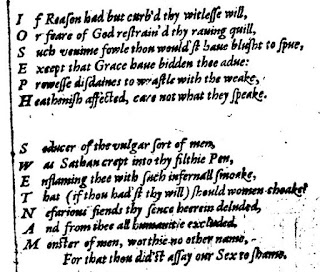 I f Reason had but curb'd thy witlesse will,
O r feare of God restrain'd thy rauing quill,
S uch venime fowle thou would'st haue blusht to spue,
E xcept that Grace haue bidden thee adue:
P rowesse disdaines to wrastle with the weake,
H eathenish affected, care not what they speake.
S educer of the vulgar sort of men,
W as Sathan crept into thy filthie Pen,
E nflaming thee with such infernall smoake,
T hat (if thou had'st thy will) should women choake?
N efarious fiends thy sence heerein deluded,
A nd from thee all humanitie excluded,
M onster of men, worthie no other name,
For that thou did'st assay our Sex to shame.